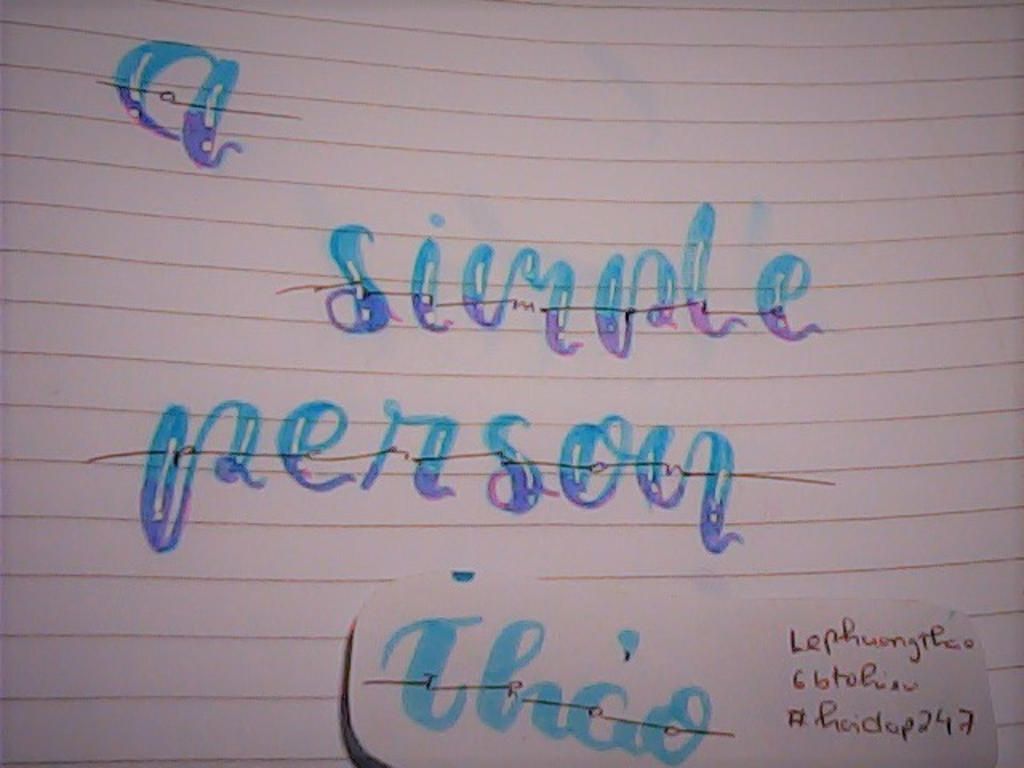 a
simple
person
Thảo
Lephuongthao
6btohiu
#hoidap247